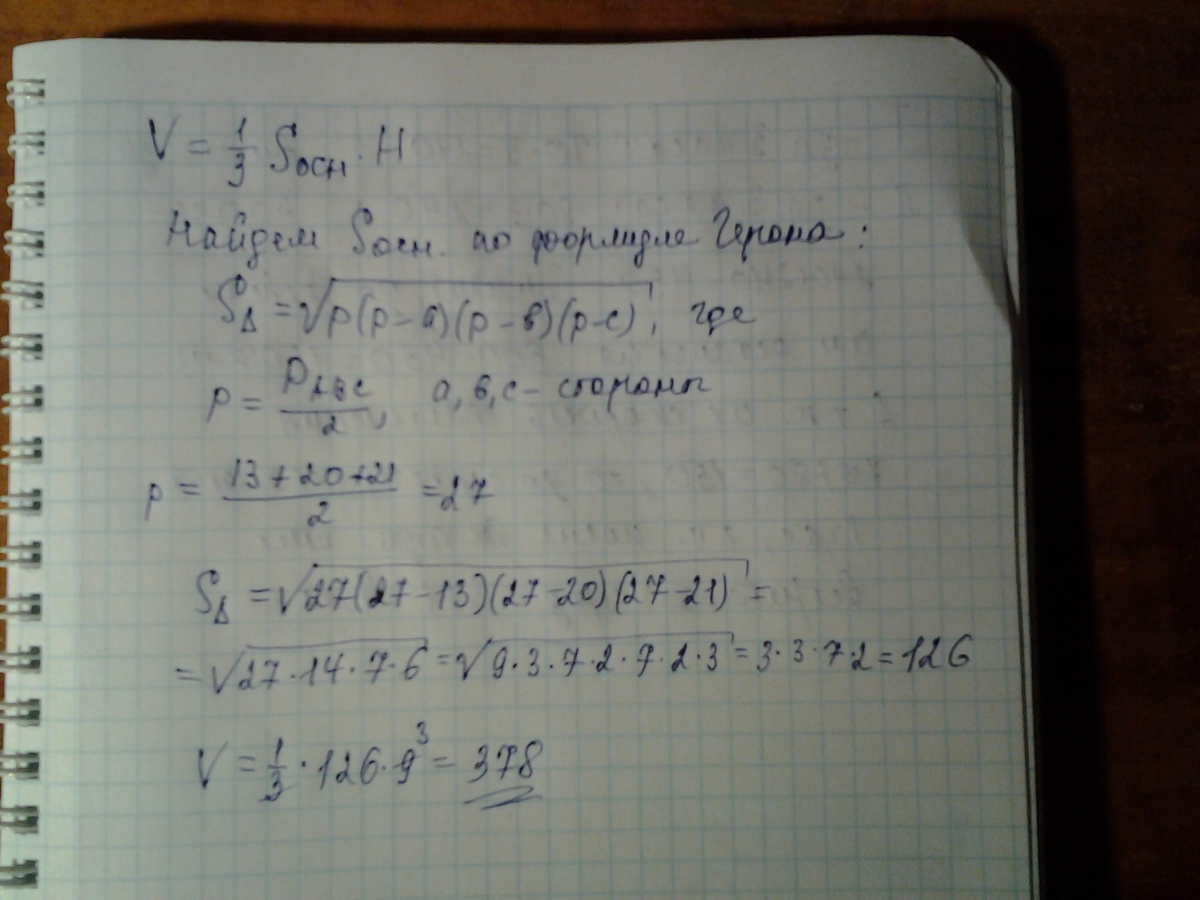 V = 1/3 Sосн. · H
Найдем Sосн. по формуле Герона:
S△ = √(p(p-a)(p-в)(p-c)), где
p = P_ABC/2, a, в, c - стороны
p = (13+20+21)/2 = 27
S△ = √(27(27-13)(27-20)(27-21)) =
= √(27·14·7·6) = √(9·3·7·2·7·2·3) = 3·3·7·2 = 126
V = 1/3 · 126 · 9³ = 378